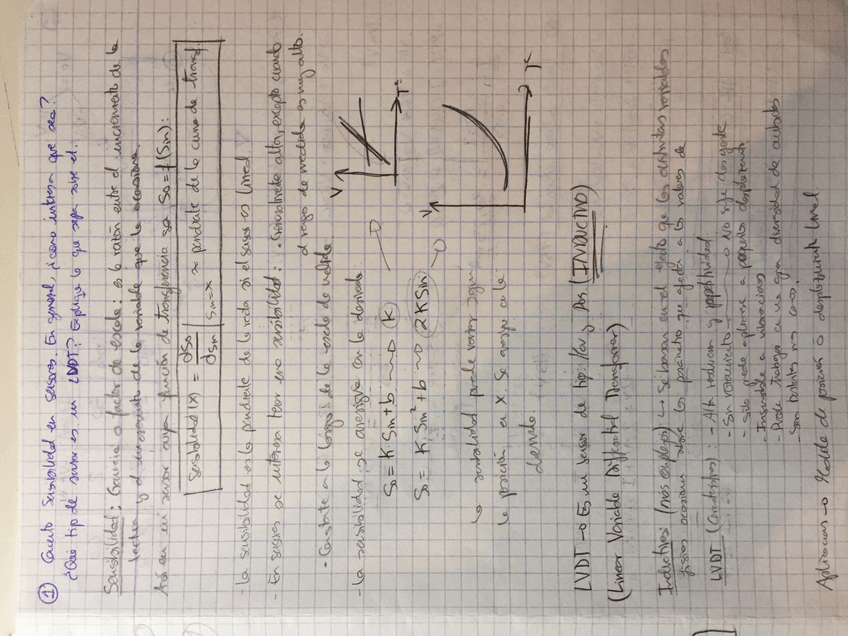 ① Concepto sensibilidad en sensores. En general, ¿como interesa que sea?
¿Qué tipo de sensor es un LVDT? Explique lo que sepa sobre él.
Sensibilidad: Ganancia o factor de escala: es la razón entre el incremento de la
lectura y el incremento de la variable que lo ocasiona.
Así en un sensor cuya función de transferencia sea So = f(Sin):
Sensibilidad (X) = dSo / dSin | Sin=x ≈ pendiente de la curva de transf
- La sensibilidad es la pendiente de la recta si el sensor es lineal
- En sensores se interesa tener una sensibilidad: · Sensiblemente alta, excepto cuando
el rango de medida es muy alto.
· Constante a lo largo de la escala de medida
- La sensibilidad se averigua con la derivada
So = K Sin + b → (K)
V
Tª
So = K Sin² + b → (2KSin)
V
Tª
La sensibilidad puede variar según
la posición en X. Se averigua con la
derivada
LVDT → Es un sensor de tipo: Mov y Pos. (INDUCTIVO)
(Linear Variable Differential Transformer)
Inductivos (más complejos) → Se basan en el efecto que las distintas variables
físicas ocasionan sobre los parámetros que afectan a los valores de
LVDT (Características) - Alta resolución y repetitividad
- Sin rozamiento → No sufre desgaste
Sólo puede aplicarse a pequeños desplazamientos
- Insensible a vibraciones
- Puede trabajar en una gran diversidad de ambientes
- Son bastantes caros.
Aplicaciones → Medida de posición o desplazamiento lineal